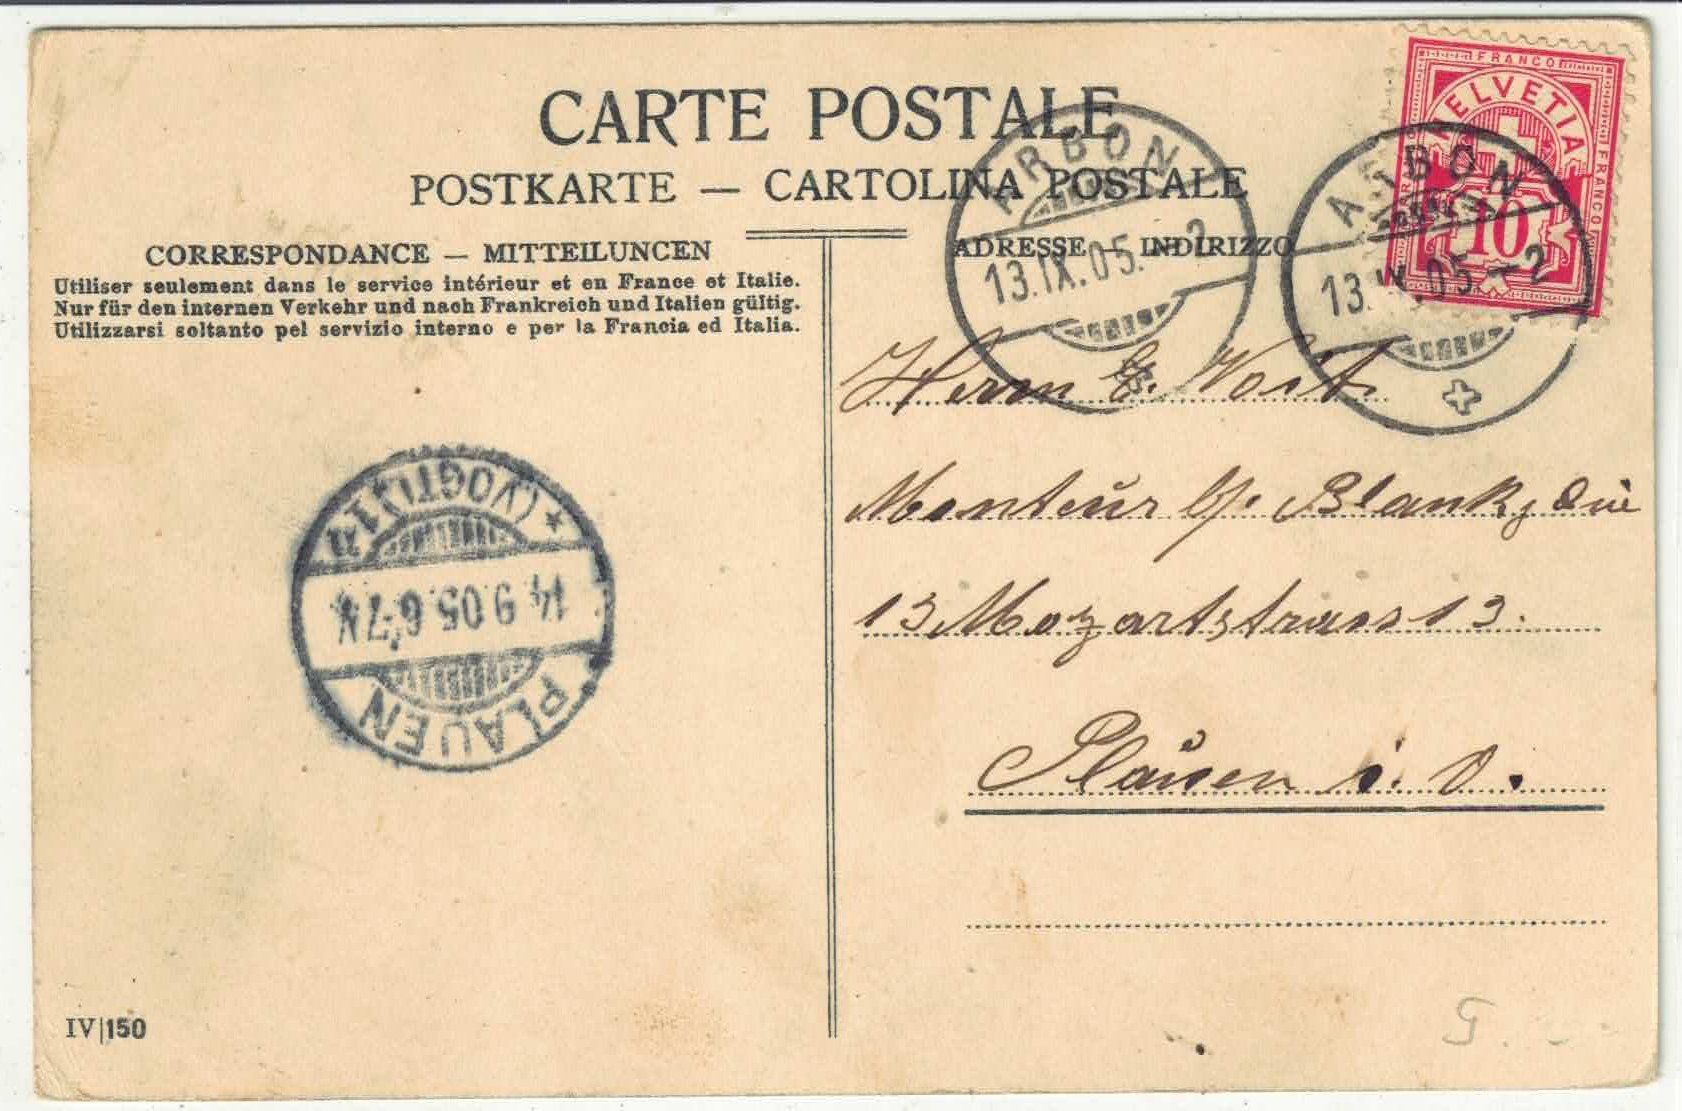 CARTE POSTALE
POSTKARTE — CARTOLINA POSTALE
FRANCO
HELVETIA
FRANCO
10
ARBON
13.IX.05. - 2
ARBON
13.IX.05. - 2
CORRESPONDANCE — MITTEILUNGEN
Utiliser seulement dans le service intérieur et en France et Italie.
Nur für den internen Verkehr und nach Frankreich und Italien gültig.
Utilizzarsi soltanto pel servizio interno e per la Francia ed Italia.
ADRESSE — INDIRIZZO
Herrn
Monteur
13 Mozartstrass 13.
Plauen i. V.
PLAUEN
14 9.05. 6-7 N
* (VOGTL) 1
IV|150